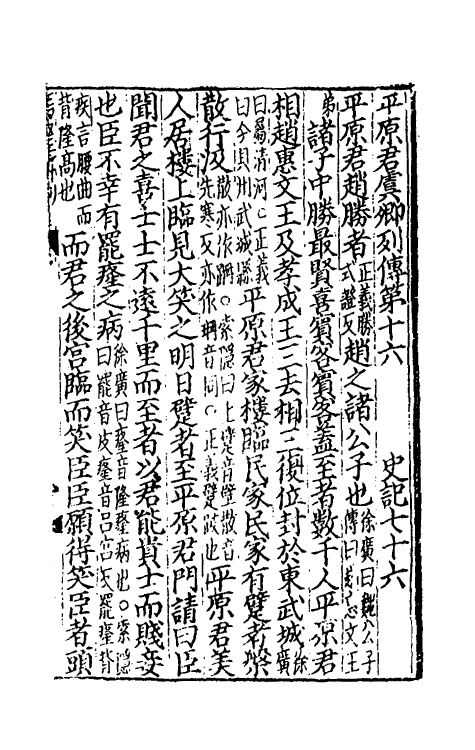 平原君虞卿列傳第十六 史記七十六
平原君趙勝者正義勝式證反趙之諸公子也徐廣曰魏公子傳曰趙惠文王
弟諸子中勝最賢喜賓客賓客蓋至者數千人平原君
相趙惠文王及孝成王三去相三復位封於東武城徐廣
曰屬清河○正義曰今貝州武城縣平原君家樓臨民家民家有躄者槃
散行汲散亦作跚○索隱曰上躄音壁散音先寒反亦作跚音同○正義躄跛也平原君美
人居樓上臨見大笑之明日躄者至平原君門請曰臣
聞君之喜士士不遠千里而至者以君能貴士而賤妾
也臣不幸有罷癃之病徐廣曰癃音隆癃病也○索隱曰罷音皮癃音呂宮反罷癃背
疾言腰曲而背隆高也而君之後宮臨而笑臣臣願得笑臣者頭